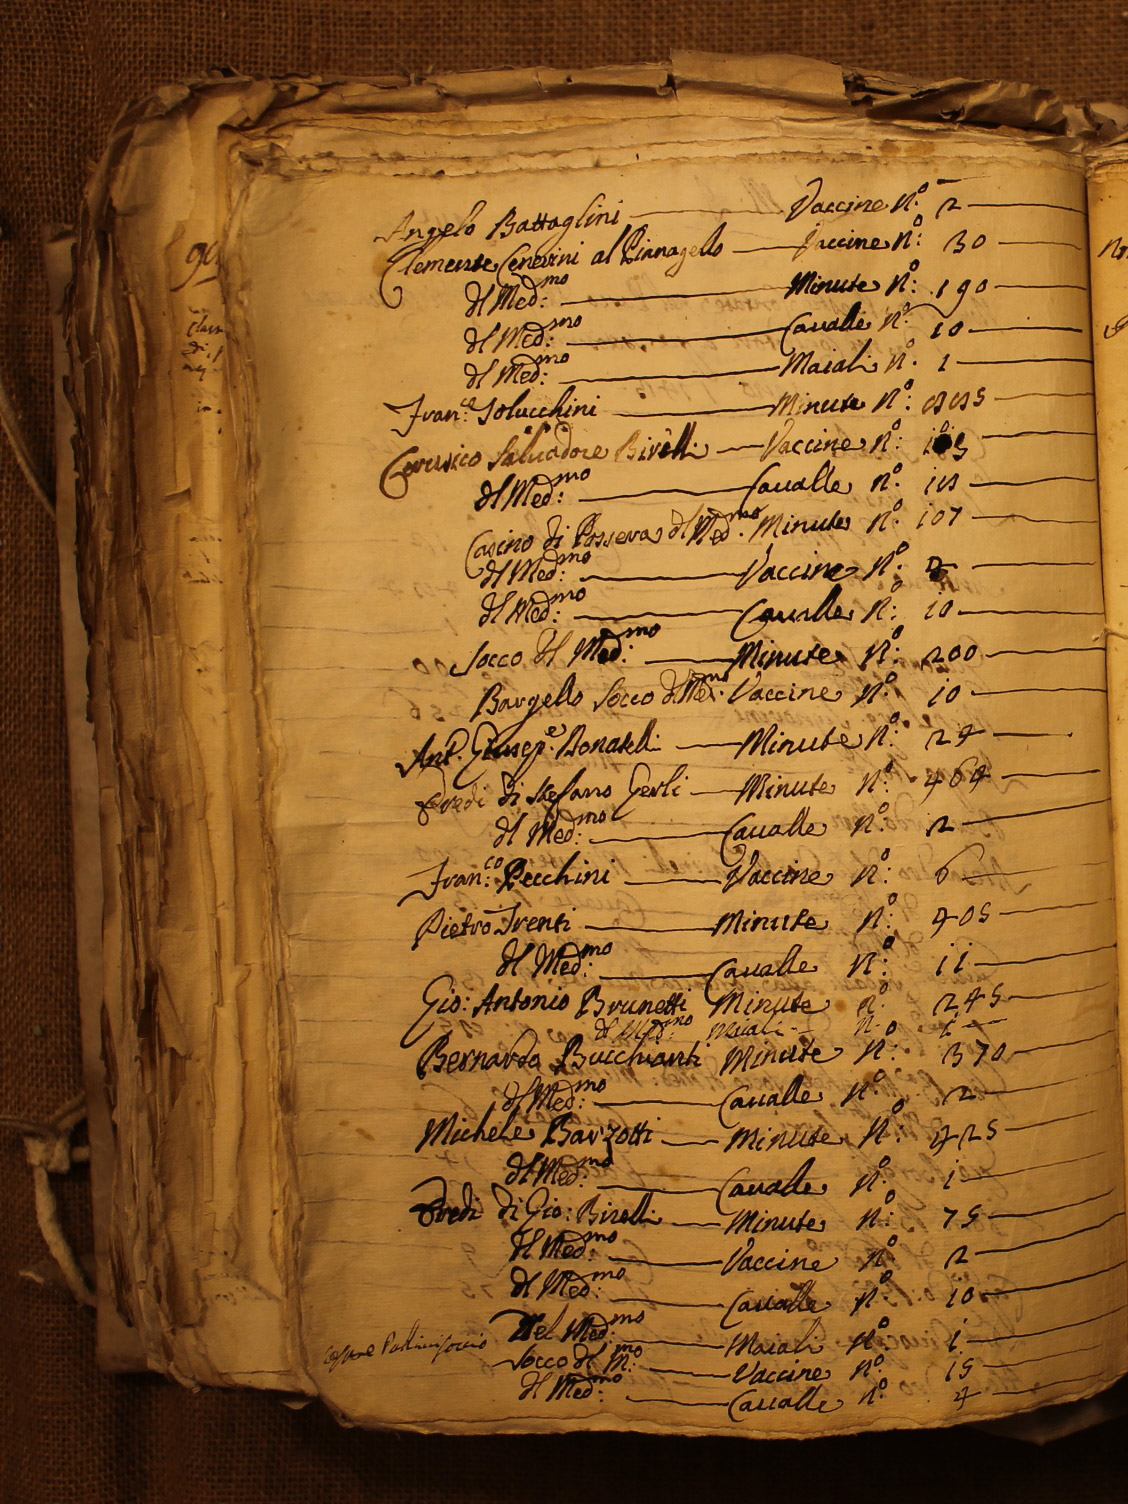 Angelo Battaglini Vaccine N.º 2
Clemente Cenerini al Pianagello Vaccine N.º 30
dl Med:mo Minute N.º 190
dl Med:mo Cavalle N.º 10
dl Med:mo Maiali N.º 1
Fran:co Solucchini Minute N.º
Cerusico Salvadore Birelli Vaccine N.º
dl Med:mo Cavalle N.º
Casino di dl Med:mo Minute N.º 107
dl Med:mo Vaccine N.º
dl Med:mo Cavalle N.º 10
Socco dl Med:mo Minute N.º 200
Bargello Socco dl Med:mo Vaccine N.º 10
Ant. Giusep:e Bonatelli Minute N.º 24
Eredi di Stefano Gerli Minute N.º 464
dl Med:mo Cavalle N.º 2
Fran:co Pecchini Vaccine N.º 6
Pietro Trenti Minute N.º 405
dl Med:mo Cavalle N.º 11
Gio: Antonio Brunetti Minute N.º 245
dl Med:mo Maiali N.º 1
Bernardo Bucchianti Minute N.º 370
dl Med:mo Cavalle N.º 2
Michele Barzotti Minute N.º 425
dl Med:mo Cavalle N.º 1
Eredi di Gio: Birelli Minute N.º 75
dl Med:mo Vaccine N.º 2
dl Med:mo Cavalle N.º 10
Del Med:mo Maiali N.º 1
Socco dl M:mo Vaccine N.º 15
dl Med:mo Cavalle N.º 4